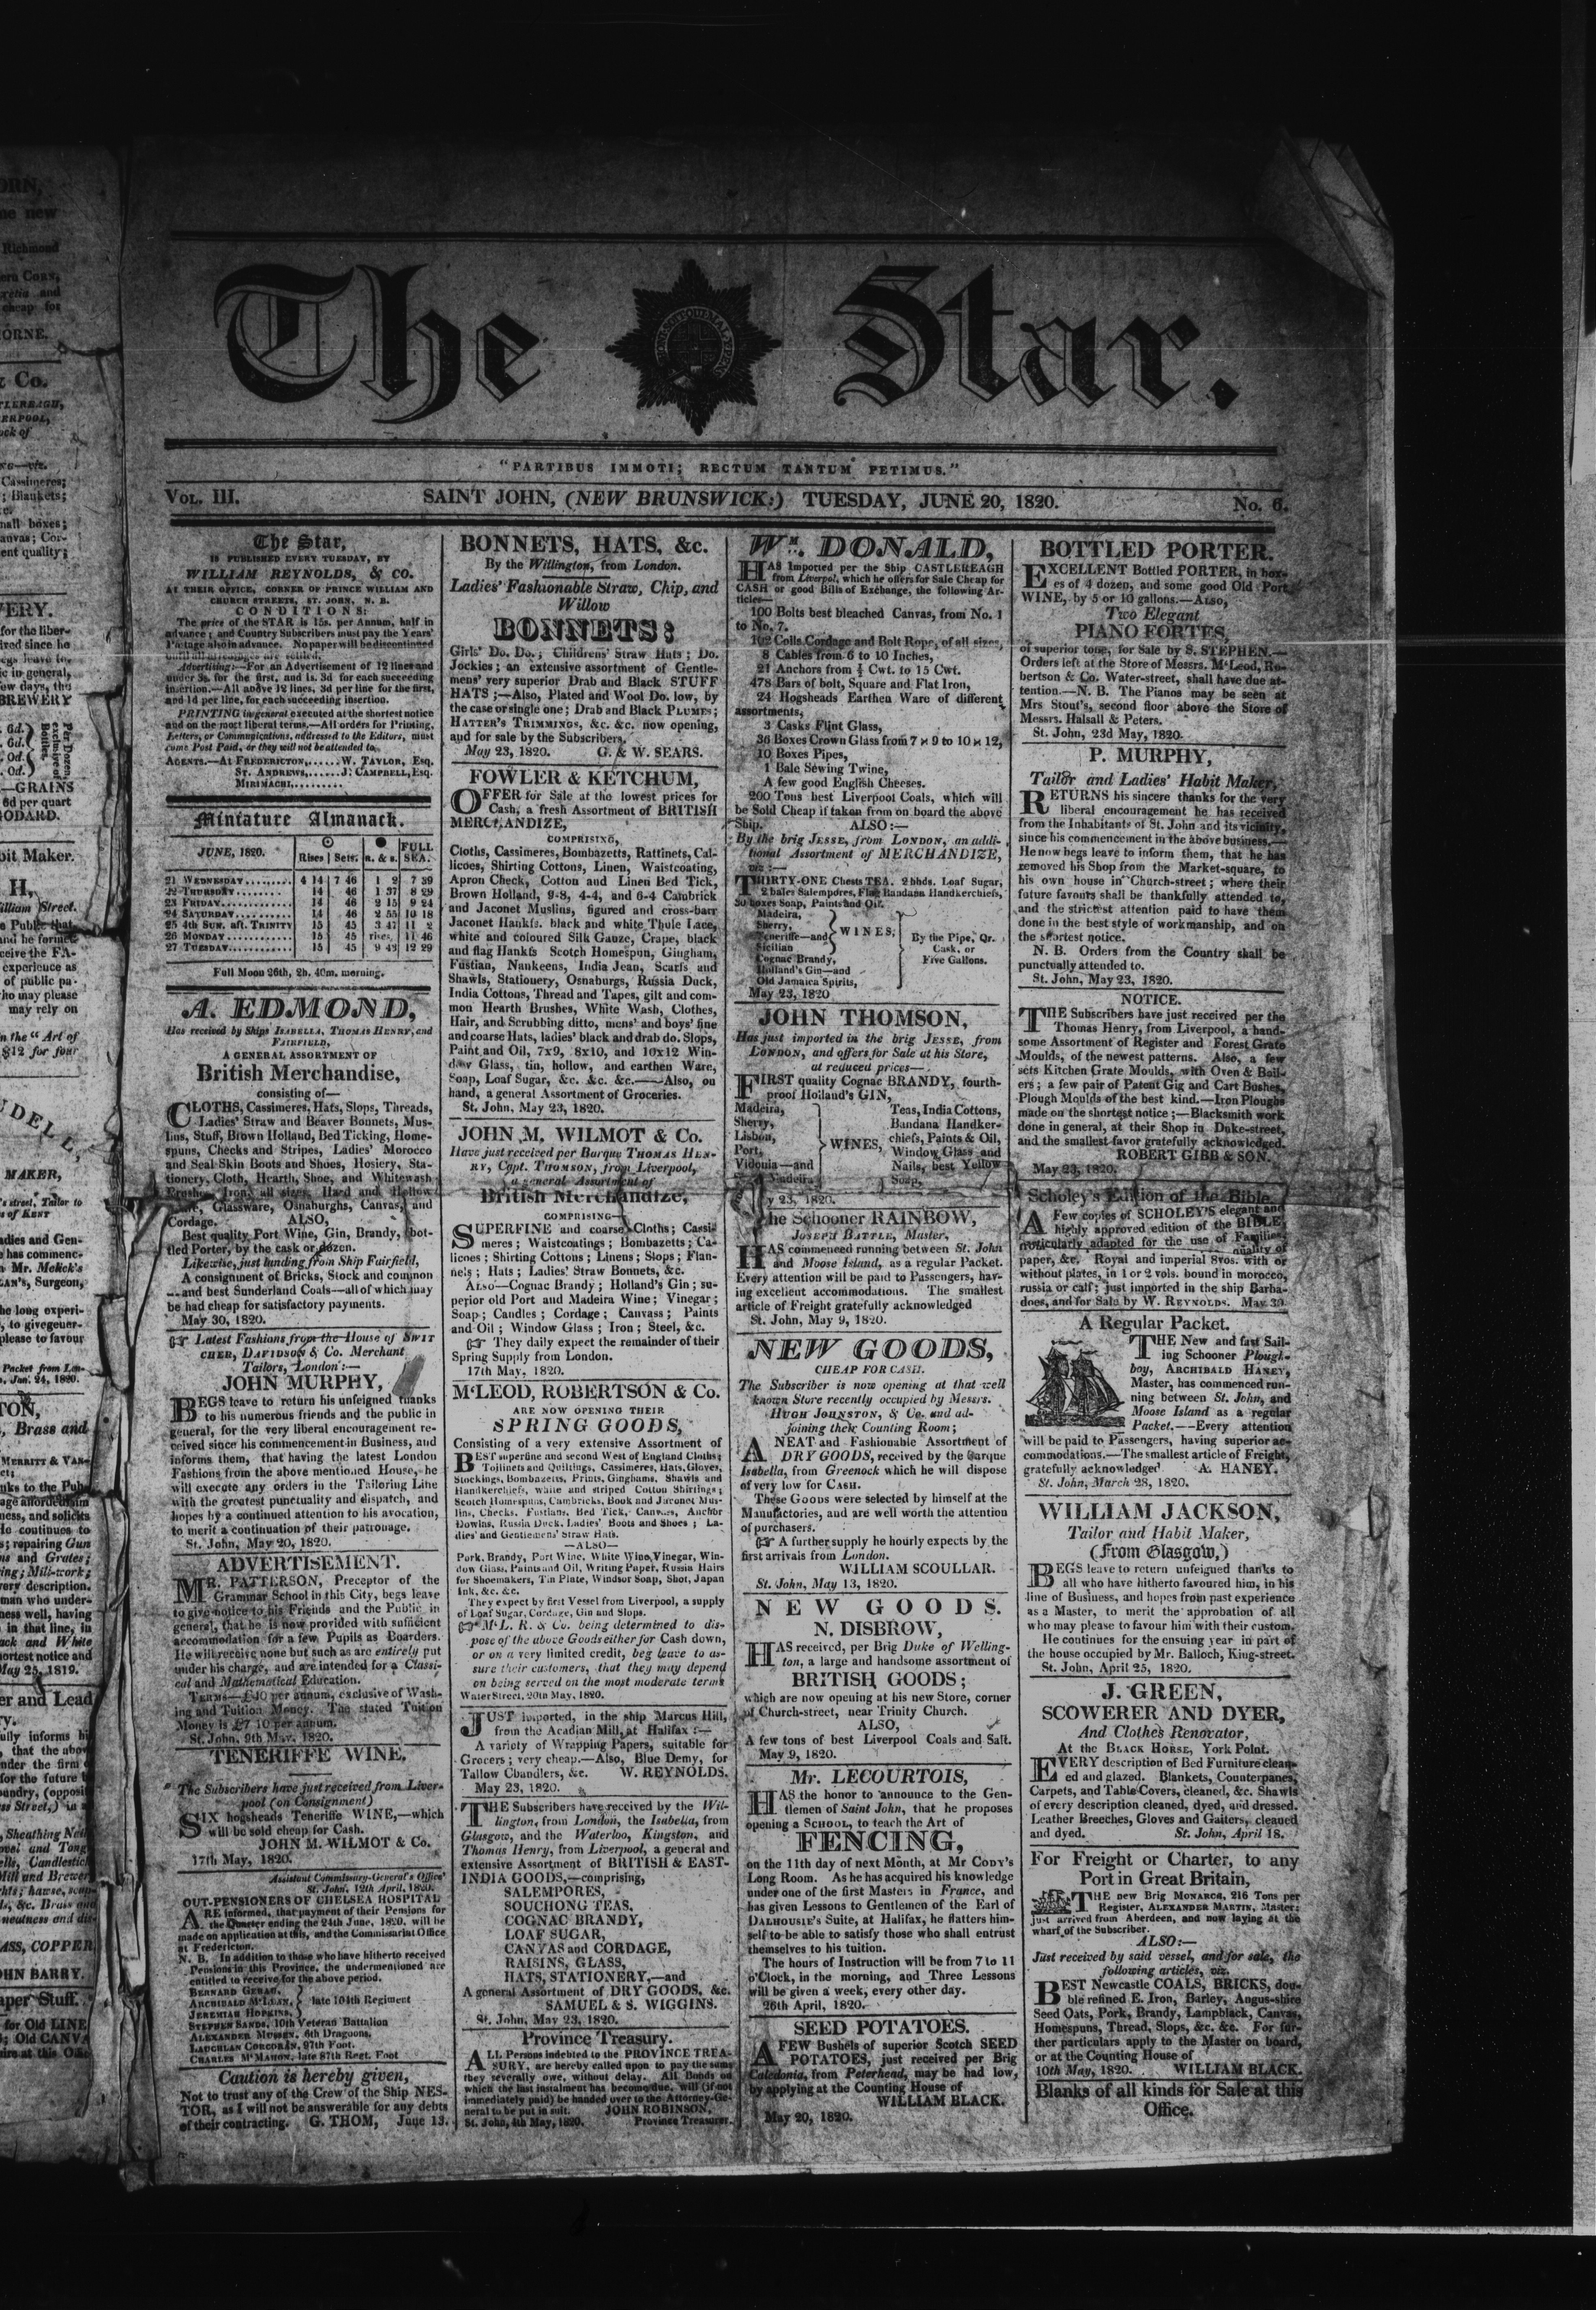 The Star.
"PARTIBUS IMMOTI; RECTUM TANTUM PETIMUS."
VOL. III. SAINT JOHN, (NEW BRUNSWICK:) TUESDAY, JUNE 20, 1820. No. 6.
The Star,
IS PUBLISHED EVERY TUESDAY, BY
WILLIAM REYNOLDS, & CO.
AT THEIR OFFICE, CORNER OF PRINCE WILLIAM AND
CHURCH STREETS, ST. JOHN, N. B.
CONDITIONS:
The price of the STAR is 15s. per Annum, half in
advance; and Country Subscribers must pay the Years'
Postage also in advance. No paper will be discontinued
until all arrearages are settled.
Advertising:—For an Advertisement of 12 lines and
under 3s. for the first, and 1s. 3d for each succeeding
insertion.—All above 12 lines, 3d per line for the first,
and 1d per line, for each succeeding insertion.
PRINTING in general executed at the shortest notice
and on the most liberal terms.—All orders for Printing,
Letters, or Communications, addressed to the Editors, must
come Post Paid, or they will not be attended to.
AGENTS.—AT FREDERICTON,......W. TAYLOR, Esq.
ST. ANDREWS,......J. CAMPBELL, Esq.
MIRIMACHI,.........
Miniature Almanack.
JUNE, 1820. Rises Sets. R. & S. FULL SEA.
21 WEDNESDAY......... 4 14 7 46 1 2 7 39
22 THURSDAY......... 14 46 1 37 8 29
23 FRIDAY............ 14 46 2 15 9 24
24 SATURDAY.......... 14 46 2 55 10 18
25 4th SUN. aft. TRINITY 15 45 3 47 11 2
26 MONDAY............ 15 45 rises, 11 46
27 TUESDAY........... 15 45 9 43 12 29
Full Moon 26th, 2h. 40m. morning.
A. EDMOND,
Has received by Ships ISABELLA, THOMAS HENRY, and
FAIRFIELD,
A GENERAL ASSORTMENT OF
British Merchandise,
consisting of—
CLOTHS, Cassimeres, Hats, Slops, Threads,
Ladies' Straw and Beaver Bonnets, Mus-
lins, Stuff, Brown Holland, Bed Ticking, Home-
spuns, Checks and Stripes, Ladies' Morocco
and Seal Skin Boots and Shoes, Hosiery, Sta-
tionery, Cloth, Hearth, Shoe, and Whitewash
Brushes, Iron, all sizes, Hard and Hollow
Ware, Glassware, Osnaburghs, Canvas, and
Cordage. ALSO,
Best quality Port Wine, Gin, Brandy, bot-
tled Porter, by the cask or dozen.
Likewise, just landing from Ship Fairfield,
A consignment of Bricks, Stock and common
—and best Sunderland Coals—all of which may
be had cheap for satisfactory payments.
May 30, 1820.
☞ Latest Fashions from the House of SWIT
CHER, DAVIDSON & Co. Merchant
Tailors, London:—
JOHN MURPHY,
BEGS leave to return his unfeigned thanks
to his numerous friends and the public in
general, for the very liberal encouragement re-
ceived since his commencement in Business, and
informs them, that having the latest London
Fashions from the above mentioned House, he
will execute any orders in the Tailoring Line
with the greatest punctuality and dispatch, and
hopes by a continued attention to his avocation,
to merit a continuation of their patronage.
St. John, May 20, 1820.
ADVERTISEMENT.
MR. PATTERSON, Preceptor of the
Grammar School in this City, begs leave
to give notice to his Friends and the Public in
general, that he is now provided with sufficient
accommodation for a few Pupils as Boarders.
He will receive none but such as are entirely put
under his charge, and are intended for a Classi-
cal and Mathematical Education.
TERMS—£40 per annum, exclusive of Wash-
ing and Tuition Money. The stated Tuition
Money is £7 10 per annum.
St. John, 9th May, 1820.
TENERIFFE WINE,
The Subscribers have just received from Liver-
pool (on Consignment)
SIX hogsheads Teneriffe WINE,—which
will be sold cheap for Cash.
JOHN M. WILMOT & Co.
17th May, 1820.
Assistant Commissary-General's Office
St. John, 12th April, 1820.
OUT-PENSIONERS OF CHELSEA HOSPITAL
ARE informed, that payment of their Pensions for
the Quarter ending the 24th June, 1820, will be
made on application at this, and the Commissariat Office
at Fredericton.
N. B. In addition to those who have hitherto received
Pensions in this Province, the undermentioned are
entitled to receive for the above period.
BERNARD GERAU,
ARCHIBALD M'LEAN, late 104th Regiment
JEREMIAH HOPKINS,
STEPHEN SANDS, 10th Veteran Battalion
ALEXANDER MUNSEN, 6th Dragoons,
LAUGHLAN CORCORAN, 97th Foot.
CHARLES M'MAHON, late 87th Regt. Foot
Caution is hereby given,
Not to trust any of the Crew of the Ship NES-
TOR, as I will not be answerable for any debts
of their contracting. G. THOM, June 13.
BONNETS, HATS, &c.
By the Willington, from London.
Ladies' Fashionable Straw, Chip, and
Willow
BONNETS;
Girls' Do. Do.; Childrens' Straw Hats; Do.
Jockies; an extensive assortment of Gentle-
mens' very superior Drab and Black STUFF
HATS;—Also, Plated and Wool Do. low, by
the case or single one; Drab and Black PLUMES;
HATTER'S TRIMMINGS, &c. &c. now opening,
and for sale by the Subscribers,
May 23, 1820. G. & W. SEARS.
FOWLER & KETCHUM,
OFFER for Sale at the lowest prices for
Cash, a fresh Assortment of BRITISH
MERCHANDIZE,
COMPRISING,
Cloths, Cassimeres, Bombazetts, Rattinets, Cal-
licoes, Shirting Cottons, Linen, Waistcoating,
Apron Check, Cotton and Linen Bed Tick,
Brown Holland, 9-8, 4-4, and 6-4 Cambrick
and Jaconet Muslins, figured and cross-barr
Jaconet Hankfs. black and white Thule Lace,
white and coloured Silk Gauze, Crape, black
and flag Hankfs Scotch Homespun, Gingham,
Fustian, Nankeens, India Jean, Scarfs and
Shawls, Stationery, Osnaburgs, Russia Duck,
India Cottons, Thread and Tapes, gilt and com-
mon Hearth Brushes, White Wash, Clothes,
Hair, and Scrubbing ditto, mens' and boys' fine
and coarse Hats, ladies' black and drab do. Slops,
Paint and Oil, 7x9, 8x10, and 10x12 Win-
dow Glass, tin, hollow, and earthen Ware,
Soap, Loaf Sugar, &c. &c. &c.—Also, on
hand, a general Assortment of Groceries.
St. John, May 23, 1820.
JOHN M. WILMOT & Co.
Have just received per Barque THOMAS HEN-
RY, Capt. THOMSON, from Liverpool,
a general Assortment of
British Merchandize,
COMPRISING—
SUPERFINE and coarse Cloths; Cassi-
meres; Waistcoatings; Bombazetts; Ca-
licoes; Shirting Cottons; Linens; Slops; Flan-
nels; Hats; Ladies' Straw Bonnets, &c.
ALSO—Cognac Brandy; Holland's Gin; su-
perior old Port and Madeira Wine; Vinegar;
Soap; Candles; Cordage; Canvass; Paints
and Oil; Window Glass; Iron; Steel, &c.
☞ They daily expect the remainder of their
Spring Supply from London.
17th May, 1820.
M'LEOD, ROBERTSON & Co.
ARE NOW OPENING THEIR
SPRING GOODS,
Consisting of a very extensive Assortment of
BEST superfine and second West of England Cloths;
Toilinets and Quiltings, Cassimeres, Hats, Gloves,
Stockings, Bombazetts, Prints, Ginghams, Shawls and
Handkerchiefs, white and striped Cotton Shirtings;
Scotch Homespuns, Cambricks, Book and Jaconet Mus-
lins, Checks, Fustians, Bed Tick, Canvass, Anchor
Dowlas, Russia Duck, Ladies' Boots and Shoes; La-
dies' and Gentlemens' Straw Hats.
—ALSO—
Pork, Brandy, Port Wine, White Wine, Vinegar, Win-
dow Glass, Paints and Oil, Writing Paper, Russia Hairs
for Shoemakers, Tin Plate, Windsor Soap, Shot, Japan
Ink, &c. &c.
They expect by first Vessel from Liverpool, a supply
of Loaf Sugar, Cordage, Gin and Slops.
☞ M'L. R. & Co. being determined to dis-
pose of the above Goods either for Cash down,
or on a very limited credit, beg leave to as-
sure their customers, that they may depend
on being served on the most moderate terms
Water Street, 20th May, 1820.
JUST imported, in the ship Marcus Hill,
from the Acadian Mill, at Halifax:—
A variety of Wrapping Papers, suitable for
Grocers; very cheap.—Also, Blue Demy, for
Tallow Chandlers, &c. W. REYNOLDS.
May 23, 1820.
THE Subscribers have received by the Wil-
lington, from London, the Isabella, from
Glasgow, and the Waterloo, Kingston, and
Thomas Henry, from Liverpool, a general and
extensive Assortment of BRITISH & EAST-
INDIA GOODS,—comprising,
SALEMPORES,
SOUCHONG TEAS,
COGNAC BRANDY,
LOAF SUGAR,
CANVAS and CORDAGE,
RAISINS, GLASS,
HATS, STATIONERY,—and
A general Assortment of DRY GOODS, &c.
SAMUEL & S. WIGGINS.
St. John, May 23, 1820.
Province Treasury.
ALL Persons indebted to the PROVINCE TREA-
SURY, are hereby called upon to pay the sums
they severally owe, without delay. All Bonds on
which the last instalment has become due, will (if not
immediately paid) be handed over to the Attorney-Ge-
neral to be put in suit. JOHN ROBINSON,
St. John, 4th May, 1820. Province Treasurer.
Wm. DONALD,
HAS Imported per the Ship CASTLEREAGH
from Liverpol, which he offers for Sale Cheap for
CASH or good Bills of Exchange, the following Ar-
ticles—
100 Bolts best bleached Canvas, from No. 1
to No. 7.
102 Coils Cordage and Bolt Rope, of all sizes,
8 Cables from 6 to 10 Inches,
21 Anchors from ½ Cwt. to 15 Cwt.
478 Bars of bolt, Square and Flat Iron,
24 Hogsheads Earthen Ware of different
assortments,
3 Casks Flint Glass,
36 Boxes Crown Glass from 7 × 9 to 10 × 12,
10 Boxes Pipes,
1 Bale Sewing Twine,
A few good English Cheeses.
200 Tons best Liverpool Coals, which will
be Sold Cheap if taken from on board the above
Ship. ALSO:—
By the brig JESSE, from LONDON, an addi-
tional Assortment of MERCHANDIZE,
viz:—
THIRTY-ONE Chests TEA, 2 hhds. Loaf Sugar,
2 bales Salempores, Flag Bandana Handkerchiefs,
30 boxes Soap, Paints and Oil.
Madeira,
Sherry,
Teneriffe—and WINES,
Sicilian
Cognac Brandy,
Holland's Gin—and
Old Jamaica Spirits,
By the Pipe, Qr.
Cask, or
Five Gallons.
May 23, 1820
JOHN THOMSON,
Has just imported in the brig JESSE, from
LONDON, and offers for Sale at his Store,
at reduced prices—
FIRST quality Cognac BRANDY, fourth-
proof Holland's GIN,
Madeira,
Sherry,
Lisbon,
Port,
Vidonia—and
Madeira
WINES,
Teas, India Cottons,
Bandana Handker-
chiefs, Paints & Oil,
Window Glass and
Nails, best Yellow
Soap,
y 23, 1820.
he Schooner RAINBOW,
JOSEPH BATTLE, Master,
HAS commenced running between St. John
and Moose Island, as a regular Packet.
Every attention will be paid to Passengers, hav-
ing excellent accommodations. The smallest
article of Freight gratefully acknowledged
St. John, May 9, 1820.
NEW GOODS,
CHEAP FOR CASH.
The Subscriber is now opening at that well
known Store recently occupied by Messrs.
HUGH JOHNSTON, & Co. and ad-
joining their Counting Room;
A NEAT and Fashionable Assortment of
DRY GOODS, received by the Barque
Isabella, from Greenock which he will dispose
of very low for CASH.
These GOODS were selected by himself at the
Manufactories, and are well worth the attention
of purchasers.
☞ A further supply he hourly expects by the
first arrivals from London.
WILLIAM SCOULLAR.
St. John, May 13, 1820.
NEW GOODS.
N. DISBROW,
HAS received, per Brig Duke of Welling-
ton, a large and handsome assortment of
BRITISH GOODS;
which are now opening at his new Store, corner
of Church-street, near Trinity Church.
ALSO,
A few tons of best Liverpool Coals and Salt.
May 9, 1820.
Mr. LECOURTOIS,
HAS the honor to announce to the Gen-
tlemen of Saint John, that he proposes
opening a SCHOOL, to teach the Art of
FENCING,
on the 11th day of next Month, at Mr CODY'S
Long Room. As he has acquired his knowledge
under one of the first Masters in France, and
has given Lessons to Gentlemen of the Earl of
DALHOUSIE'S Suite, at Halifax, he flatters him-
self to be able to satisfy those who shall entrust
themselves to his tuition.
The hours of Instruction will be from 7 to 11
o'Clock, in the morning, and Three Lessons
will be given a week, every other day.
26th April, 1820.
SEED POTATOES.
A FEW Bushels of superior Scotch SEED
POTATOES, just received per Brig
Caledonia, from Peterhead, may be had low,
by applying at the Counting House of
WILLIAM BLACK.
May 20, 1820.
BOTTLED PORTER.
EXCELLENT Bottled PORTER, in box-
es of 4 dozen, and some good Old Port
WINE, by 5 or 10 gallons.—ALSO,
Two Elegant
PIANO FORTES,
of superior tone, for Sale by S. STEPHEN.—
Orders left at the Store of Messrs. M'Leod, Ro-
bertson & Co. Water-street, shall have due at-
tention.—N. B. The Pianos may be seen at
Mrs Stout's, second floor above the Store of
Messrs. Halsall & Peters.
St. John, 23d May, 1820.
P. MURPHY,
Tailor and Ladies' Habit Maker,
RETURNS his sincere thanks for the very
liberal encouragement he has received
from the Inhabitants of St. John and its vicinity,
since his commencement in the above business,—
He now begs leave to inform them, that he has
removed his Shop from the Market-square, to
his own house in Church-street; where their
future favours shall be thankfully attended to,
and the strictest attention paid to have them
done in the best style of workmanship, and on
the shortest notice.
N. B. Orders from the Country shall be
punctually attended to.
St. John, May 23, 1820.
NOTICE.
THE Subscribers have just received per the
Thomas Henry, from Liverpool, a hand-
some Assortment of Register and Forest Grate
Moulds, of the newest patterns. Also, a few
sets Kitchen Grate Moulds, with Oven & Boil-
ers; a few pair of Patent Gig and Cart Bushes,
Plough Moulds of the best kind.—Iron Ploughs
made on the shortest notice;—Blacksmith work
done in general, at their Shop in Duke-street,
and the smallest favor gratefully acknowledged.
ROBERT GIBB & SON.
May 23, 1820.
Scholey's Edition of the Bible.
A Few copies of SCHOLEY'S elegant and
highly approved edition of the BIBLE,
particularly adapted for the use of Families,
quality of
paper, &c. Royal and imperial 8vos. with or
without plates, in 1 or 2 vols. bound in morocco,
russia or calf; just imported in the ship Barba-
does, and for Sale by W. REYNOLDS. May 30.
A Regular Packet.
THE New and fast Sail-
ing Schooner Plough-
boy, ARCHIBALD HANEY,
Master, has commenced run-
ning between St. John, and
Moose Island as a regular
Packet.—Every attention
will be paid to Passengers, having superior ac-
commodations.—The smallest article of Freight,
gratefully acknowledged. A. HANEY.
St. John, March 28, 1820.
WILLIAM JACKSON,
Tailor and Habit Maker,
(From Glasgow,)
BEGS leave to return unfeigned thanks to
all who have hitherto favoured him, in his
line of Business, and hopes from past experience
as a Master, to merit the approbation of all
who may please to favour him with their custom.
He continues for the ensuing year in part of
the house occupied by Mr. Balloch, King-street.
St. John, April 25, 1820.
J. GREEN,
SCOWERER AND DYER,
And Clothes Renovator,
At the BLACK HORSE, York Point.
EVERY description of Bed Furniture clean-
ed and glazed. Blankets, Counterpanes,
Carpets, and Table Covers, cleaned, &c. Shawls
of every description cleaned, dyed, and dressed.
Leather Breeches, Gloves and Gaiters, cleaned
and dyed. St. John, April 18.
For Freight or Charter, to any
Port in Great Britain,
THE new Brig MONARCH, 216 Tons per
Register, ALEXANDER MARTIN, Master;
just arrived from Aberdeen, and now laying at the
wharf of the Subscriber.
ALSO:—
Just received by said vessel, and for sale, the
following articles, viz.
BEST Newcastle COALS, BRICKS, dou-
ble refined E. Iron, Barley, Angus-shire
Seed Oats, Pork, Brandy, Lampblack, Canvas,
Homespuns, Thread, Slops, &c. &c. For fur-
ther particulars apply to the Master on board,
or at the Counting House of
10th May, 1820. WILLIAM BLACK.
Blanks of all kinds for Sale at this
Office.